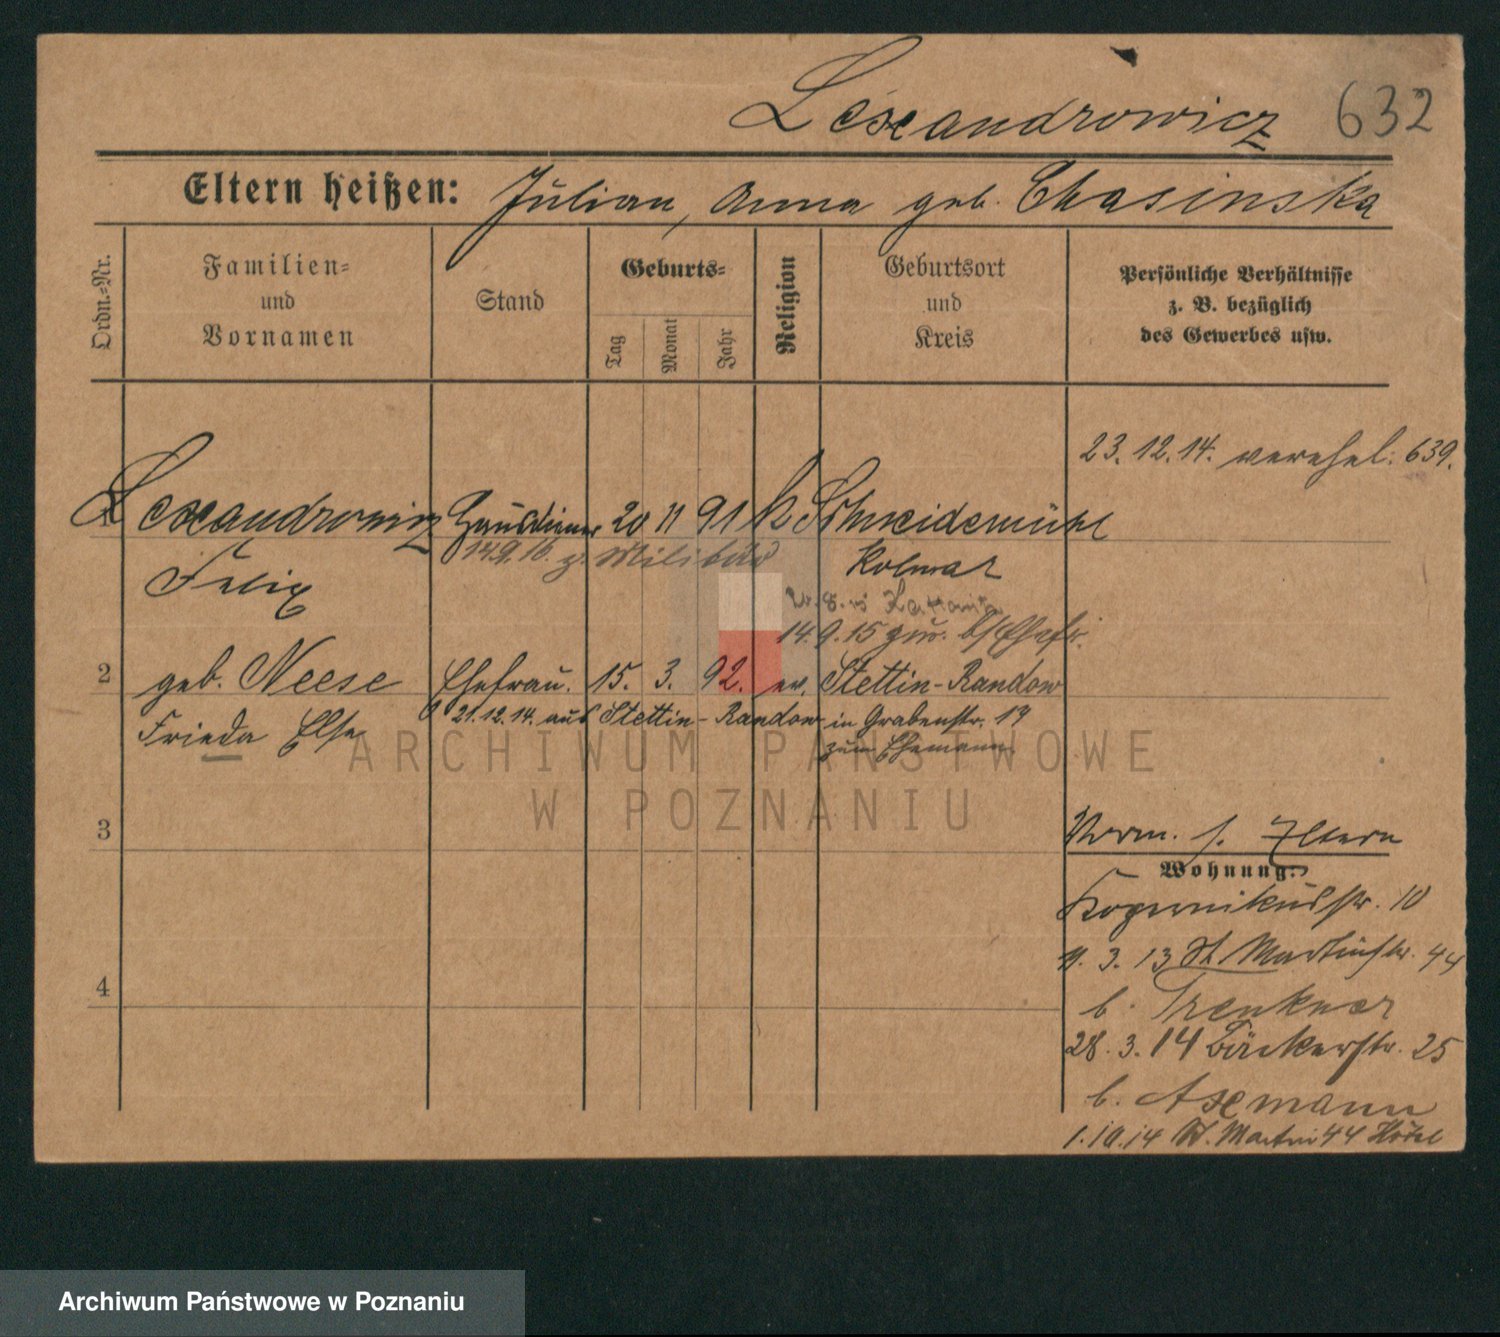 Lexandrowicz 632
Eltern heißen: Julian, Anna geb. Chasinska
Ordn.=Nr.
Familien=
und
Vornamen
Stand
Geburts=
Tag
Monat
Jahr
Religion
Geburtsort
und
Kreis
Persönliche Verhältnisse
z. B. bezüglich
des Gewerbes usw.
23.12.14. verehel. 639.
Lexandrowicz Hausdiener 20 11 91 k Schneidemühl
14.9.16. z. Militär Kolmar
Felix
14.9.15 zur. Ehefr.
2 geb. Neese Ehefrau. 15. 3. 92. ev. Stettin-Randow
21.12.14. aus Stettin-Randow in Grabenstr. 19
Frieda Else zum Ehemann
3
4
Verm. s. Eltern
Wohnung:
Kopernikusstr. 10
11. 3. 13 St Martinstr. 44
b. Trenkner
28. 3. 14 Bäckerstr. 25
b. Axemann
1.10.14 St. Martin 44 Hotel
ARCHIWUM PAŃSTWOWE
W POZNANIU
Archiwum Państwowe w Poznaniu